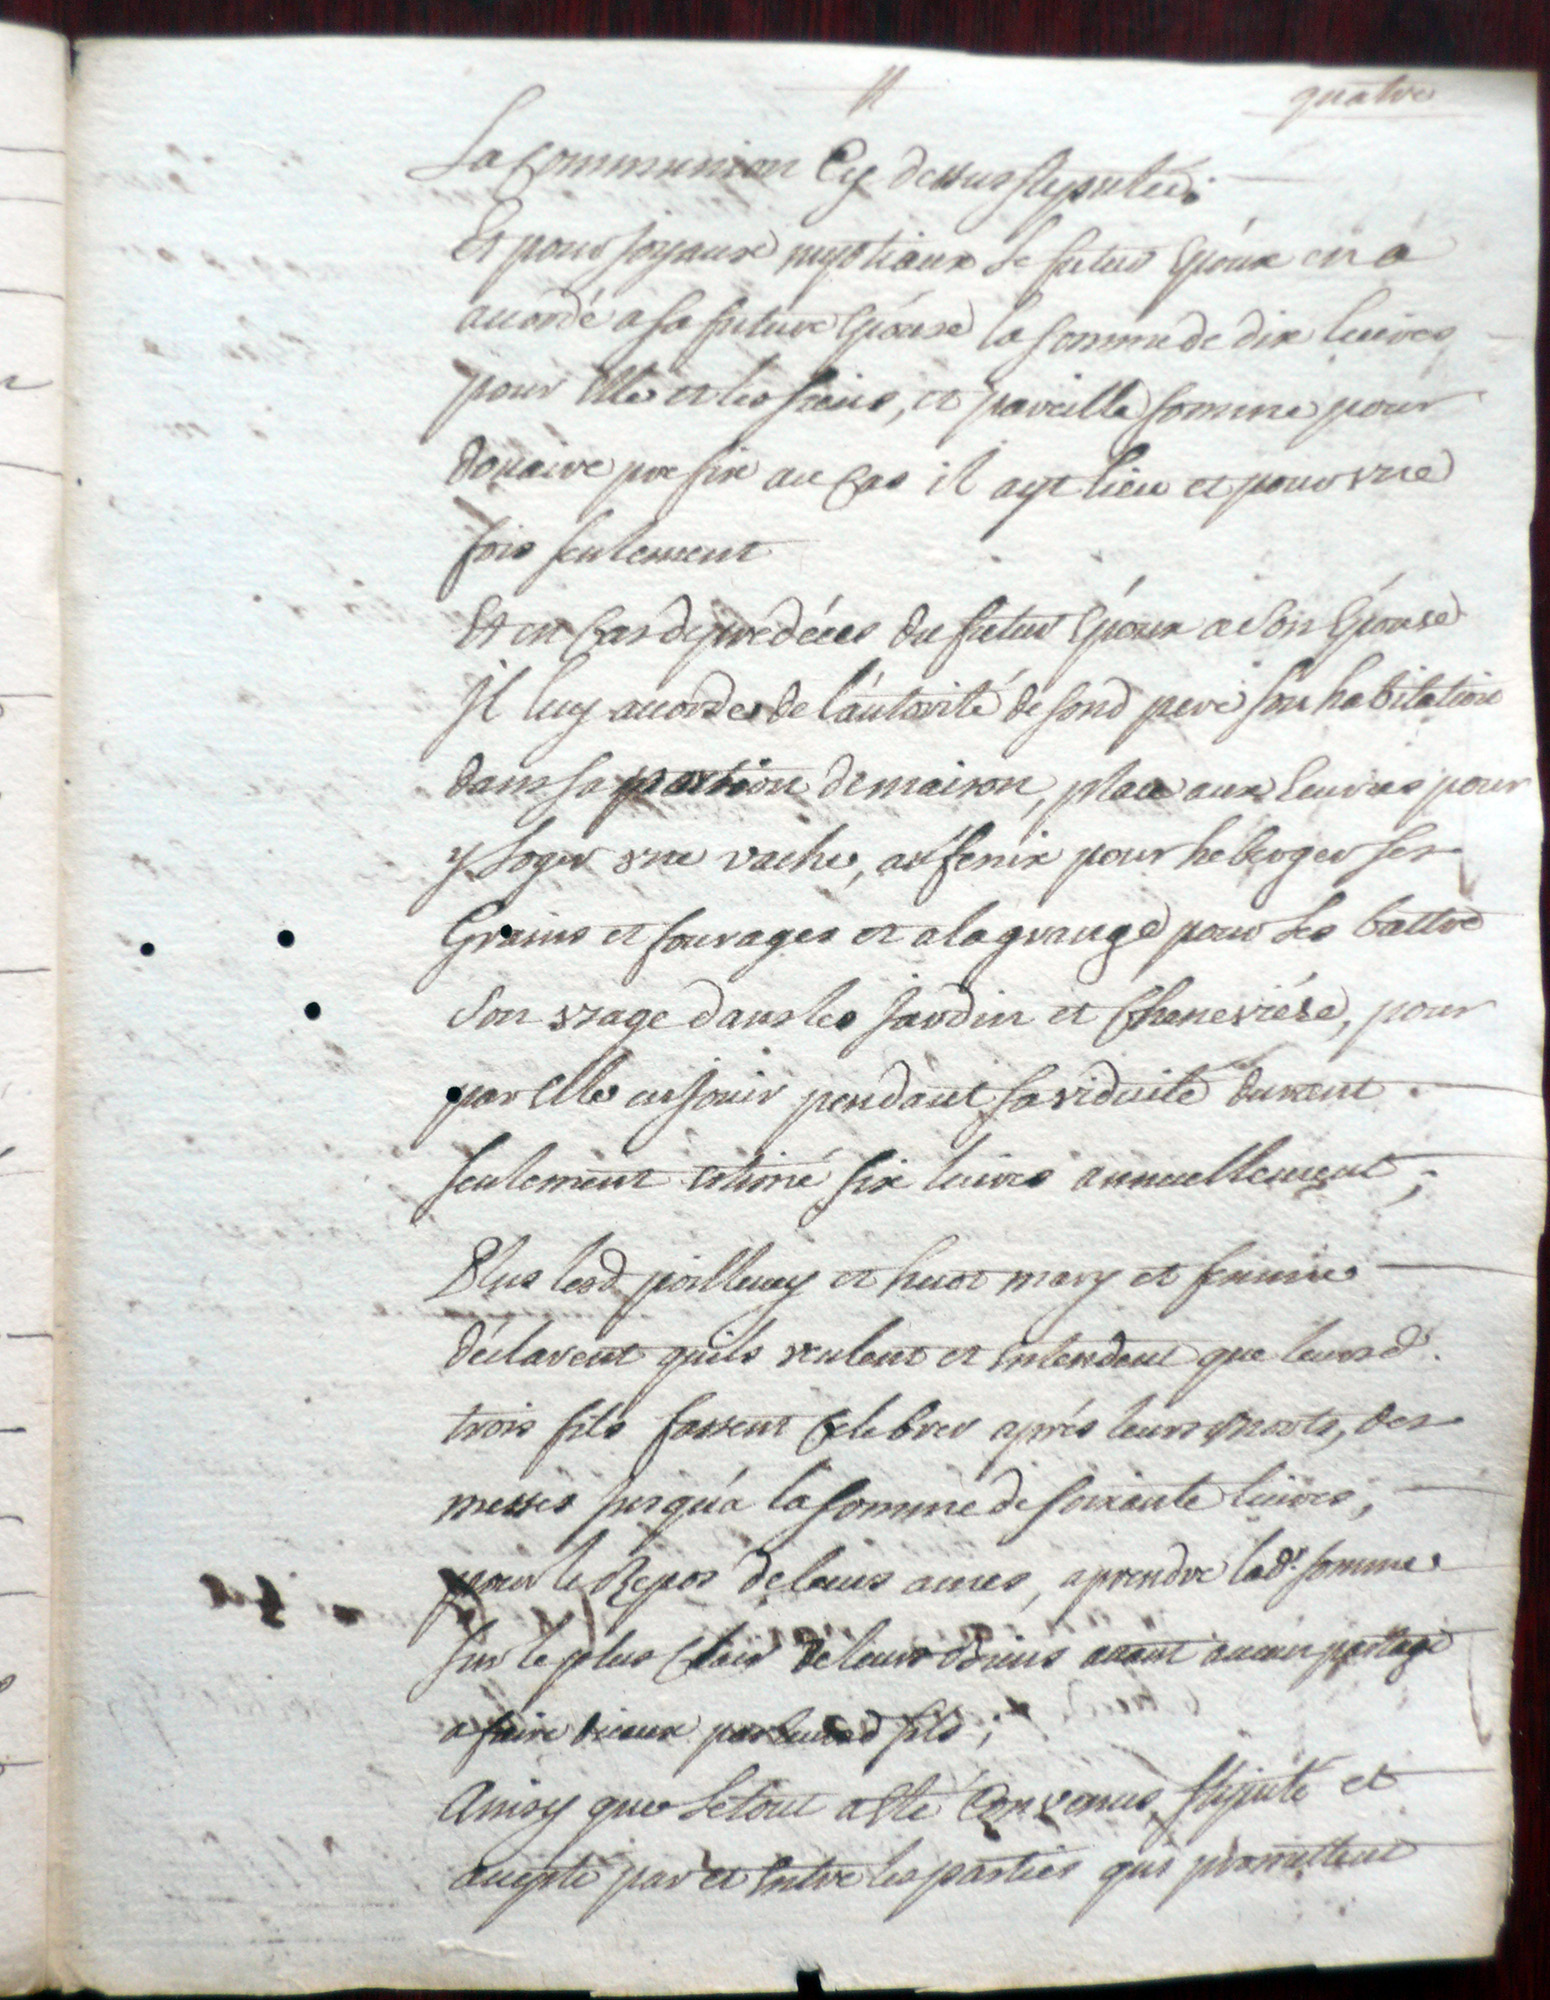 quatre
La Communion Cy dessus stipulée.
Et pour joyaux nuptiaux le futur Epoux en a
accordé a sa future Epouse la somme de dix livres
pour Elle et les siens, et pareille somme pour
douaire prefix au Cas il ayt lieu et pour vne
fois seulement
Et en Cas de predécès du futur Epoux a son Epouse
Il luy accorde de l'autorité de sond pere son habitation
dans sa portion de maison, place aux Ecuries pour
y loger vne vache, au fenix pour heberger ses
Grains et fourages et a la grange pour les battre
Son vzage dans les Jardin et Cheneviére, pour
par Elle en Jouir pendant sa viduité durant
seulement estimé six livres annuellement ;
Plus lesd. poilleuey et huot mary et femme
déclarent quils veulent et Entendent que leursd.
trois fils fassent Celebrer aprés leurs morts, des
messes jusqu'a la somme de soixante livres,
pour le Repos de leurs ames, a prendre lad.e somme
sur le plus Clair de leurs Biens avant aucun partage
a faire d'icaux par leursd fils ;
Ainsy que le tout a Eté Convenus, stipulé et
accepté par et Entre les parties qui promettent